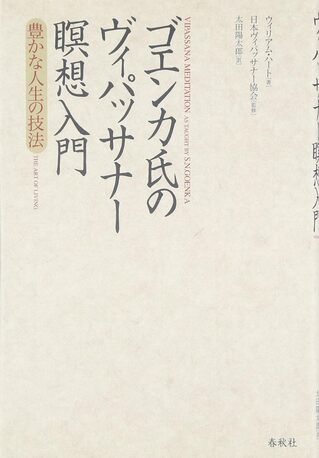 ウィリアム・ハート[著]
日本ヴィパッサナー協会[監修]
太田陽太郎[訳]
ゴエンカ氏の
VIPASSANA MEDITATION AS TAUGHT BY S.N.GOENKA
ヴィパッサナー
瞑想入門
豊かな人生の技法
THE ART OF LIVING
春秋社
ヴィパッサナー瞑想入門